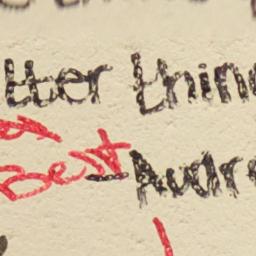 tter thin
Best
-Audre